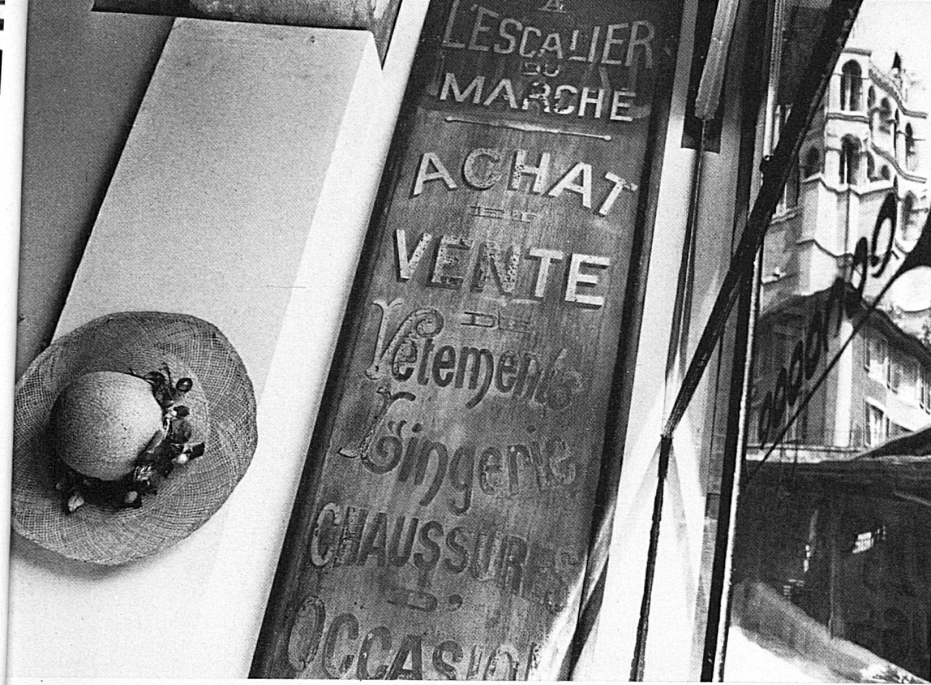 A
L'ESCALIER
DU
MARCHÉ
ACHAT
ET
VENTE
DE
Vêtements
Lingerie
CHAUSSURES
D'
OCCASION